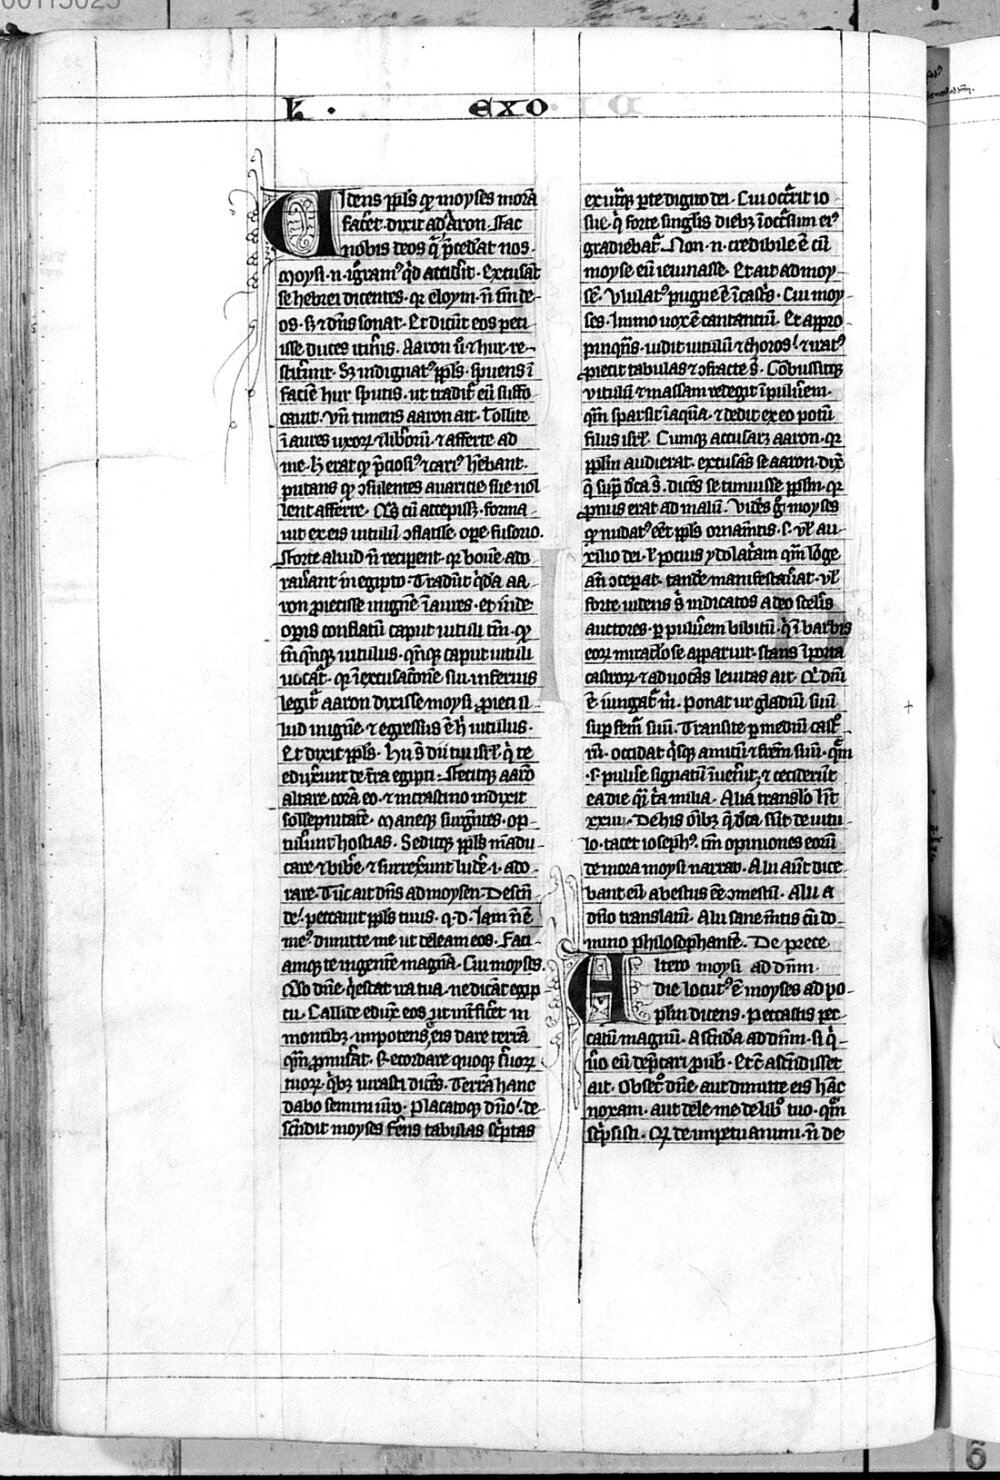 k · EXO
Uidens ppl̃s qͥ moyses morã
facet᷑. dixit ad Aron. Fac
nobis deos q̃ p̃cedãt nos.
Moysi .n. ignoram᷒ qͥd accidit᷑. Excusãt
se hebrei dicentes. qꝛ eloym. ñ sim de-
os. sꝫ ⁊ dñs sonat. Et dicũt eos peti-
isse duces itinis᷑. Aaron u̾o ⁊ hur re-
stiterũt. Sꝫ indignat᷒ ppl̃s. spuens ĩ
faciẽ hur sputis. ut tradit᷑ eũ suffo-
cauit. Vñ timens aaron ait. Tollite
ĩaures uxorꝝ ⁊ libeꝛoꝝ. ⁊ afferte ad
me. h̾ erat qͥ p̃ciosi᷒ ⁊ cari᷒ hẽbant.
putans qͥ ꝯsulentes auaricie sue nol-
lent afferre. Qͦs cũ accepiss̃. forma-
uit ex eis uitulũ ꝯflatile. oꝑe fusorio.
Forte aliud ñ reciꝑent. qꝛ bouẽ ado-
rauerant in egipto. Tradũt qͥdã aa-
ron ꝓiecisse in ignẽ ĩaures. et inde
oꝑis conflatũ caput uituli tm̃. qͥ
tm̃ qñqꝫ uitulus. qñqꝫ caput uituli
uocat᷑. qꝛ ĩ excusatõne sui inferius
legit᷑ aaron dixisse moysi. ꝓieci il-
lud in ignẽ. ⁊ egressus ẽ hͥ uitulus.
Et dixit ppl̃s. Hii s̃ dii tui isrl̃. qͥ te
eduxerunt de t̃ra egipti. Fecitqꝫ aarõ
altare corã eo. ⁊ in crastino indixit
sollẽpnitatẽ. Maneqꝫ surgentes. op-
tulerunt hostias. Seditqꝫ ppl̃s mãdu-
care ⁊ bibe᷑. ⁊ surrexerunt lude᷑. i. ado-
rare. Tũc ait dñs ad moysen. Descẽ-
de. peccauit ppl̃s tuus. q.d. Iam ñ ẽ
me᷒. dimitte me ut deleam eos. Faci-
amqꝫ te in gentẽ magnã. Cui moyses.
Qͦ dñe. qͥescat ira tua. ne dicãt egip-
tii. Callide eduxit eos ut int̾ficeret in
montibꝫ. impotens eis dare terrã
quã ꝓmiserat. Recordare quoqꝫ seruoꝝ
tuoꝝ. qͥbꝫ iurasti dicẽs. Terrã hanc
dabo semini uro. Placatoqꝫ dño. de-
scendit moyses ferens tabulas sc̾ptas
ex ut̾qꝫ ꝑte digito dei. Cui occ̃rit io-
sue. qͥ forte singl̃is diebꝫ ĩ occ̃sum ei᷒
gradiebat᷑. Non .n. credibile ẽ cũ
moyse eũ ieiunasse. Et ait ad moy-
sẽ. Vlulat᷒ pugne ẽ ĩ cast̾s. Cui moy-
ses. Immo uox ẽ cantantiũ. Et appro-
pinquãs. uidit uitulũ ⁊ choros. ⁊ irat᷒
ꝓiecit tabulas ⁊ ꝯfracte s̃. Cõbussitqꝫ
uitulũ ⁊ massam redegit ĩ puluerem.
quem sparsit ĩ aquã. ⁊ dedit ex eo potũ
filiis isrl̃. Cumqꝫ accusarꝫ aaron. qꝛ
ppl̃m audierat. excusãs se aaron. dix̃
q̃ sup̃ dicta s̃. dicẽs se timuisse ppl̃m. qꝛ
ꝓnus erat ad malũ. Vidẽs gͦ moyses
qͥ nudat᷒ eẽt ppl̃s ornam̃tis. s. ul̃ au-
xilio dei. ul̃ pocius ydolat̾am quam lõge
añ ꝯceperat. tandẽ manifestauerat. ul̃
forte uidens s̃ indicatos a deo sceleris
auctores. ꝑ puluerem bibitũ. qͥ ĩ barbis
eoꝝ miraculose apparuit. stans ĩ porta
castroꝝ. ⁊ aduocãs leuitas ait. Qͥ dñi
ẽ iungat᷑ m̾. Ponat uir gladiũ suũ
suꝑ femur suũ. Transite ꝑ mediũ castro-
rũ. occidat qͥsqꝫ amicũ ⁊ fr̃em suũ. quem
.s. puluere signatũ ĩuenerit. ⁊ ceciderũt
ea die quasi tͥa milia. Alia translo h̃t
xxiii. De his oĩbꝫ q̃ dicta sũt de uitu-
lo. tacet ioseph᷒. tm̃ opiniones eorũ
de mora moysi narrat. Alii aut̃ dice-
bant eũ a bestiis eẽ ꝯmestũ. Alii a
dño translatũ. Alii sane m̃tis cũ do-
mino philosophantẽ. De prece
Altera moysi ad dñm.
die locut᷒ ẽ moyses ad po-
pl̃m dicens. Peccastis pec-
catũ magnũ. Ascendã ad dñm. si qͦ-
mͦ eũ dep̃cari poterͦ. Et cũ ascendisset
ait. Obsecͦ dñe. aut dimitte eis hãc
noxam. aut dele me de libͦ tuo. quem
sc̾psisti. Qꝛ de impetu animi. ñ de